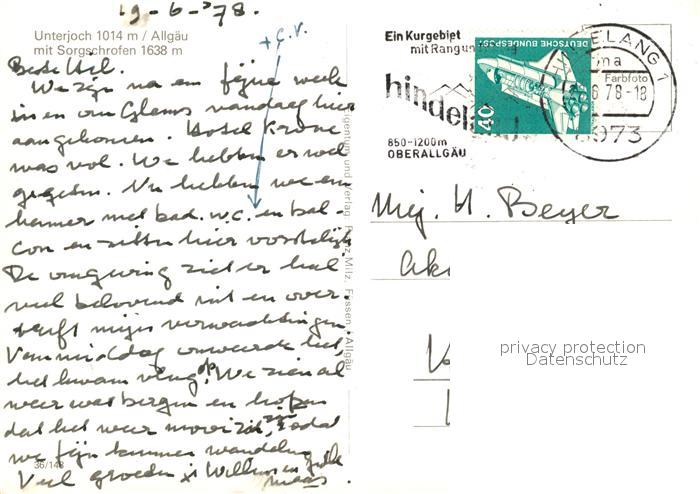 19-6-'78.
+ C.V.
Unterjoch 1014 m / Allgäu
mit Sorgschrofen 1638 m
Beste Hil.
We zijn na een fijne week
in en om Glarus vandaag hier
aangekomen. Hotel Krone
was vol. We hebben er wel
gegeten. Nu hebben we een
kamer met bad. w.c. en bal-
con en zitten hier vorstelijk
De omgeving ziet er heel
veel belovend uit en over-
treft mijn verwachtingen
Vanmiddag onweerde het,
het kwam vlug op. We zien al
weer wat bergen en hopen
dat het weer mooi zal zijn, zodat
we fijn kunnen wandelen
Veel groeten Willem en
36/148
Eigentum und Verlag Franz Milz, Füssen / Allgäu
Ein Kurgebiet
mit Rang und
hindelang
850-1200m
OBERALLGÄU
DEUTSCHE BUNDESPOST
40
HINDELANG 1
Farbfoto
6.78-18
8973
Mej. H. Beyer
privacy protection
Datenschutz